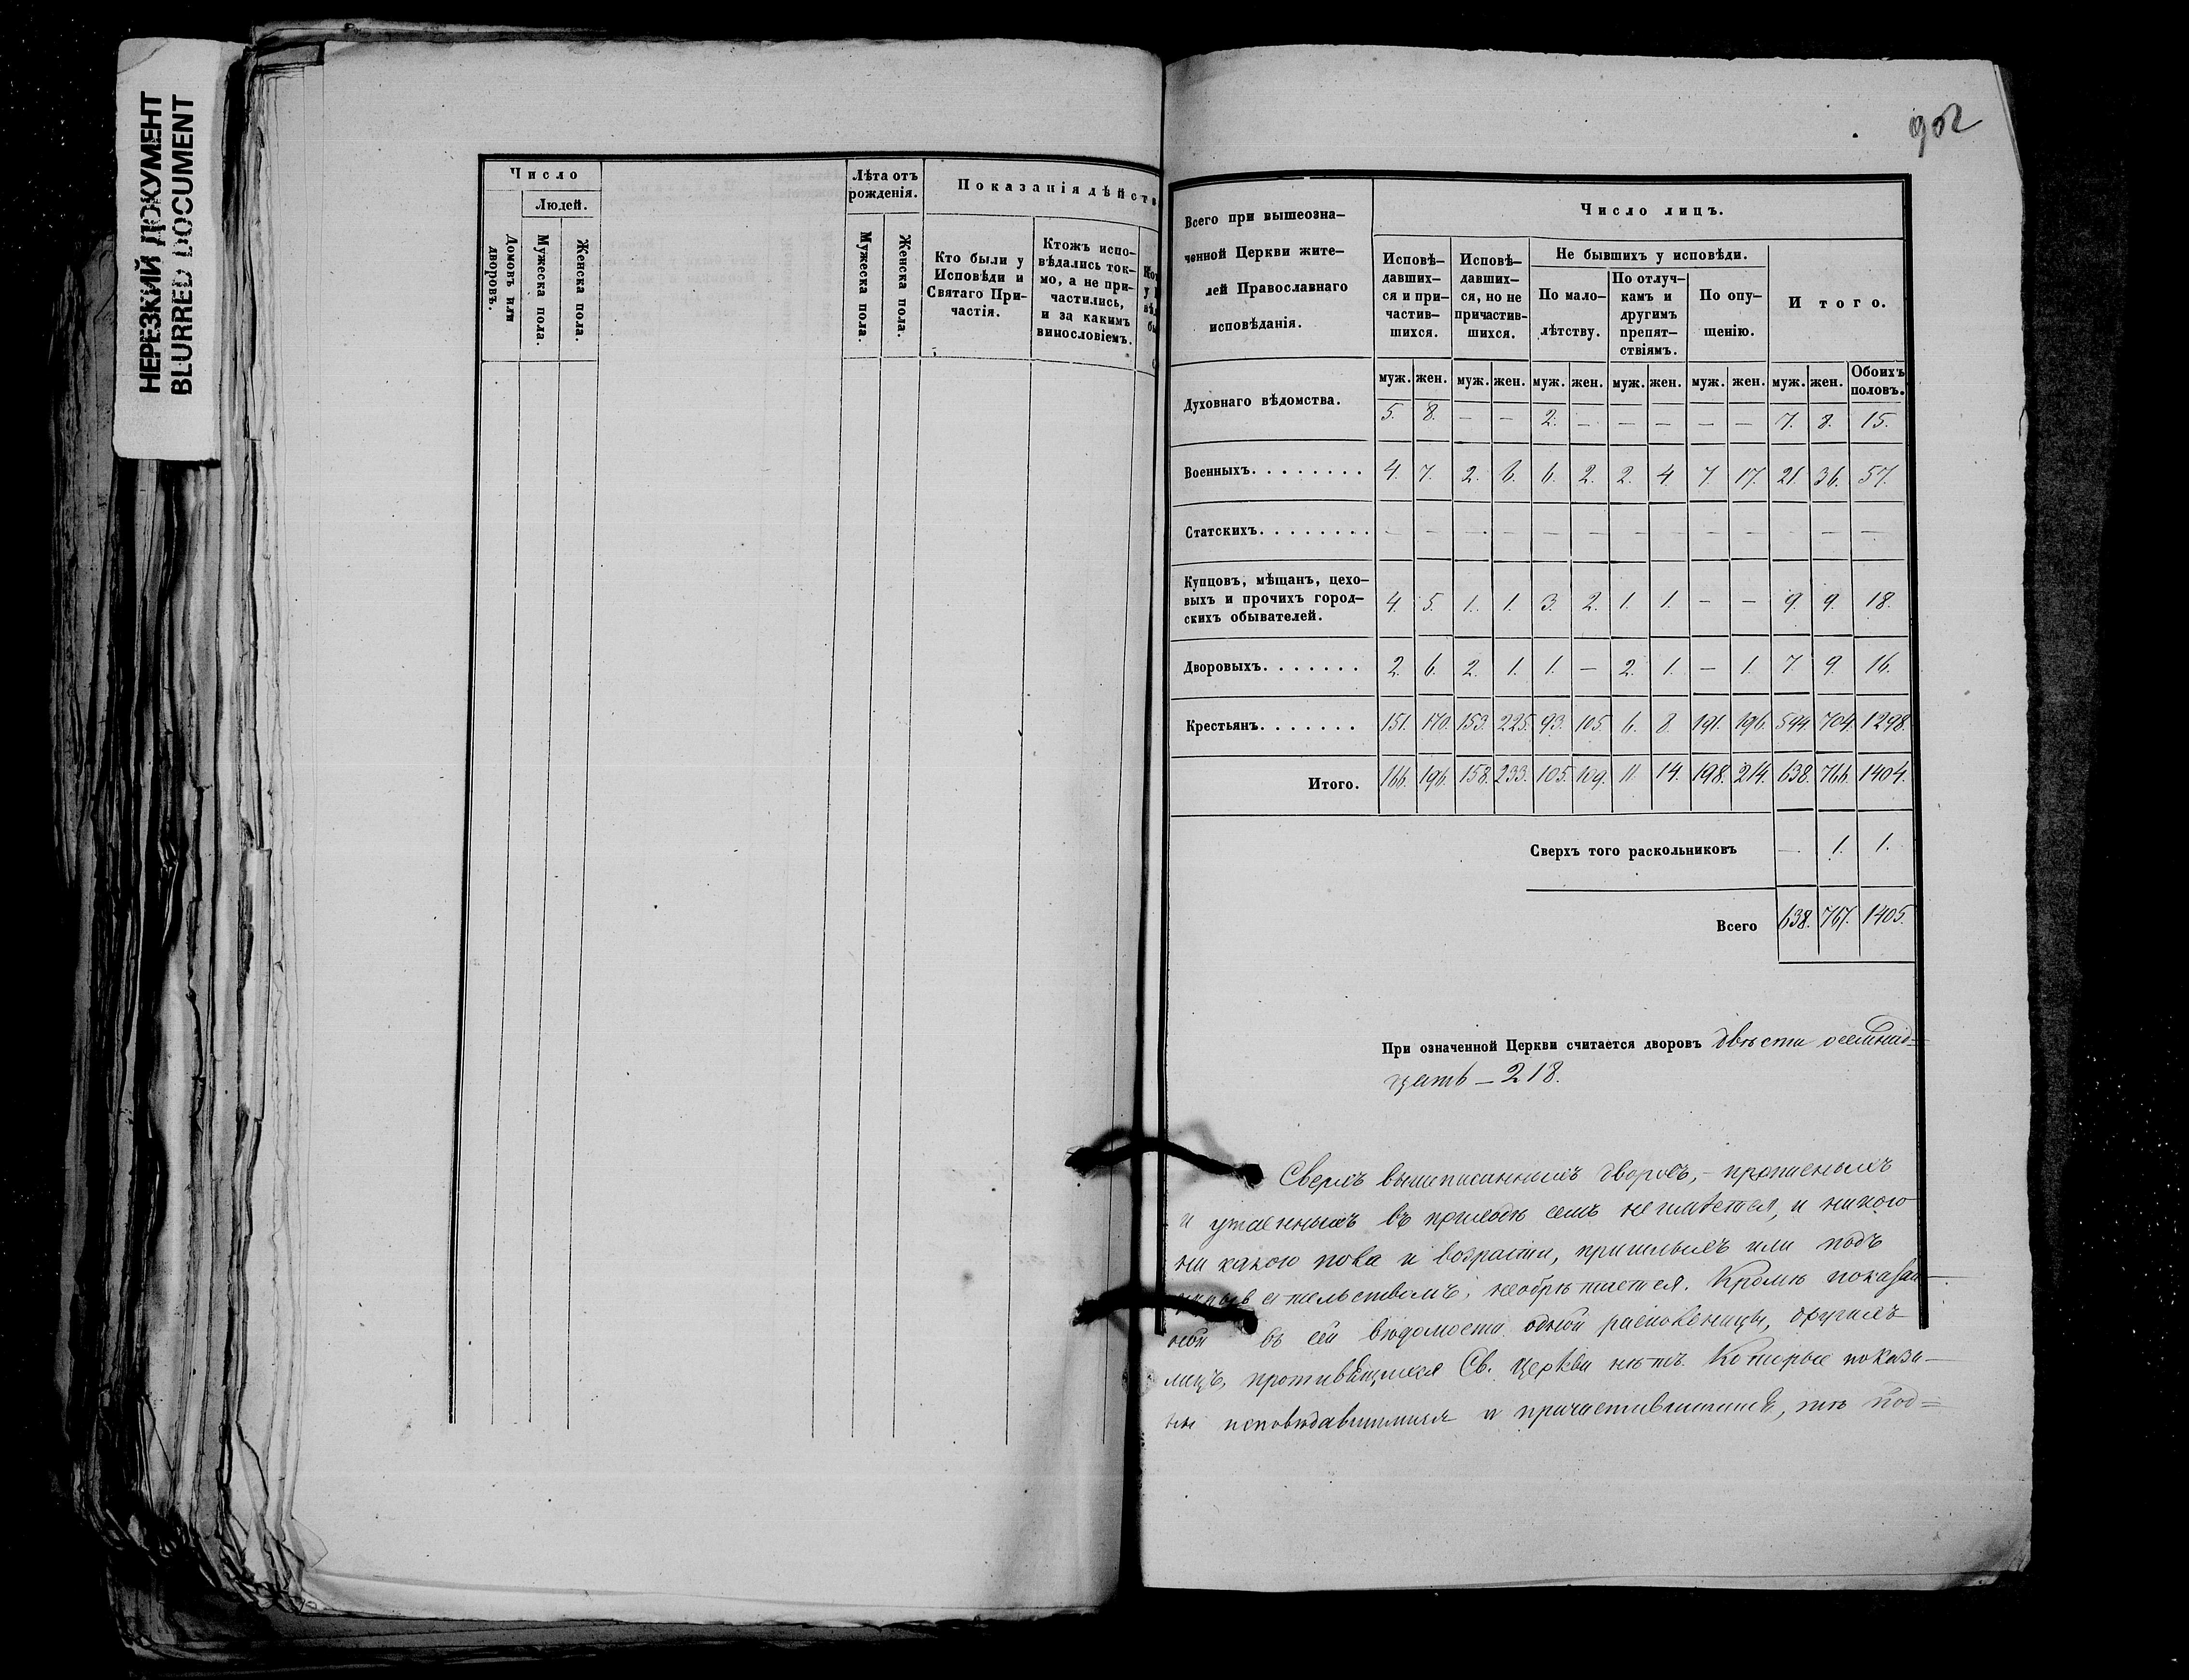 НЕРЕЗКИЙ ДОКУМЕНТ
BLURRED DOCUMENT
Число
Людей.
Домовъ или дворовъ.
Мужеска пола.
Женска пола.
Лѣта отъ рожденія.
Мужеска пола
Женска пола.
Показанія дѣйств
Кто были у Исповѣди и Святаго Причастія.
Ктожъ исповѣдались токмо, а не причастились, и за какимъ винословіемъ.
902
Всего при вышеозна-
ченной Церкви жите-
лей Православнаго
исповѣданія.
Число лицъ.
Исповѣ-давших-ся и при-частив-шихся.
Исповѣ-давших-ся, но не причастив-шихся.
Не бывшихъ у исповѣди.
По мало-лѣтству.
По отлуч-камъ и другимъ препят-ствіямъ.
По опу-щенію.
Итого.
муж. жен. муж. жен. муж. жен. муж. жен. муж. жен. муж. жен. Обоихъ половъ.
Духовнаго вѣдомства. 5. 8. — — 2. — — — — — 7. 8. 15.
Военныхъ. . . . . . . . 4. 7. 2. 6. 6. 2. 2. 4. 7. 17. 21. 36. 57.
Статскихъ. . . . . . . . — — — — — — — — — — — — —
Купцовъ, мѣщанъ, цехо-
выхъ и прочихъ город-
скихъ обывателей. 4. 5. 1. 1. 3. 2. 1. 1. — — 9. 9. 18.
Дворовыхъ. . . . . . . 2. 6. 2. 1. 1. — 2. 1. — 1. 7. 9. 16.
Крестьянъ. . . . . . . 151. 170. 153. 225. 93. 105. 6. 8. 191. 196. 594. 704. 1298.
Итого. 166. 196. 158. 233. 105. 109. 11. 14. 198. 214. 638. 766. 1404.
Сверхъ того раскольниковъ — 1. 1.
Всего 638. 767. 1405.
При означенной Церкви считается дворовъ двѣсти осемнад=
цать — 218.
Сверхъ вышеписанныхъ дворовъ, — прописныхъ
и утаенныхъ въ приходѣ семъ не имѣется, и никого
ни какого пола и возраста, пришлыхъ или подъ
укрывательствомъ, не обрѣтается. Кромѣ показан—
ной въ сей вѣдомости одной расколницы, другихъ
лицъ, противящихся Св. Церкви нѣтъ. Которые показа—
ны исповѣдавшимися и причастившимися, тѣ под=